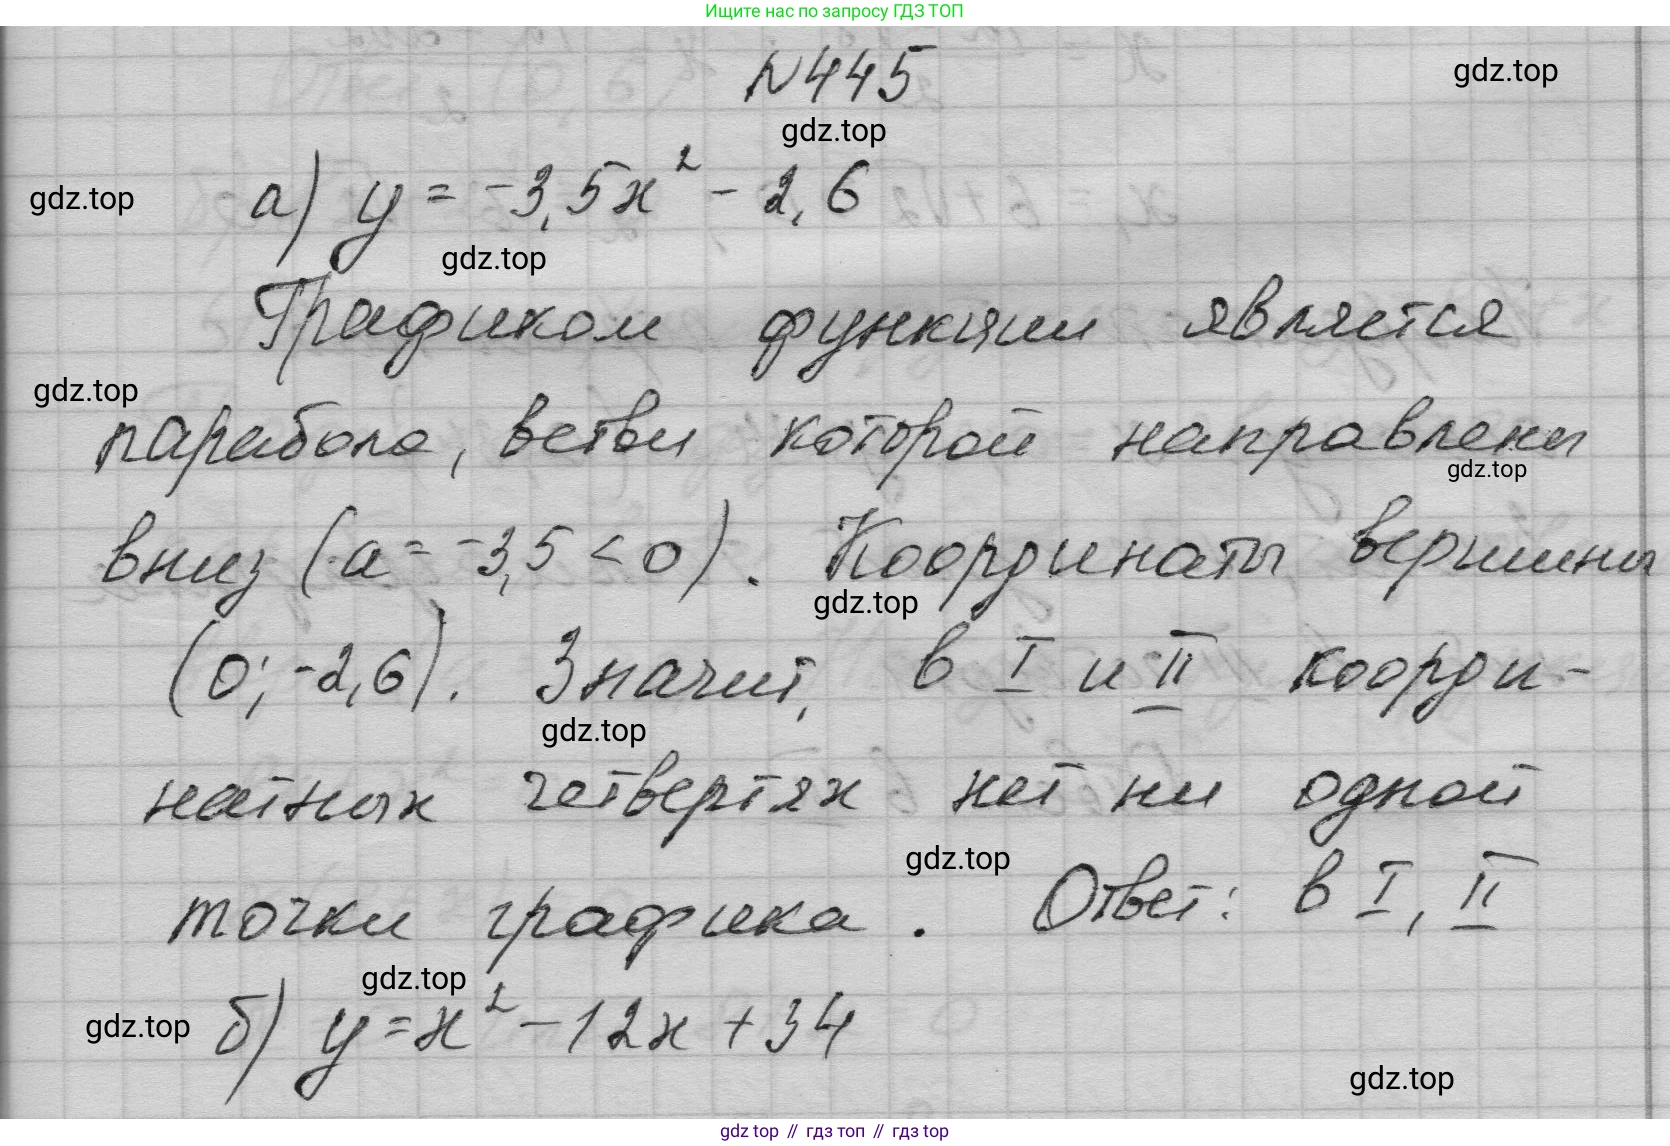 Ищите нас по запросу ГДЗ ТОП
N445
gdz.top
gdz.top
а) y = -3,5x² - 2,6
gdz.top
gdz.top
Графиком функции является
gdz.top
парабола, ветви которой направлены
gdz.top
вниз (a = -3,5 < 0). Координаты вершины
gdz.top
(0; -2,6). Значит, в I и II коорди-
gdz.top
натных четвертях нет ни одной
gdz.top
точки графика. Ответ: в I, II
gdz.top
gdz.top
б) y = x² - 12x + 34
gdz.top
gdz top // гдз топ // гдз top